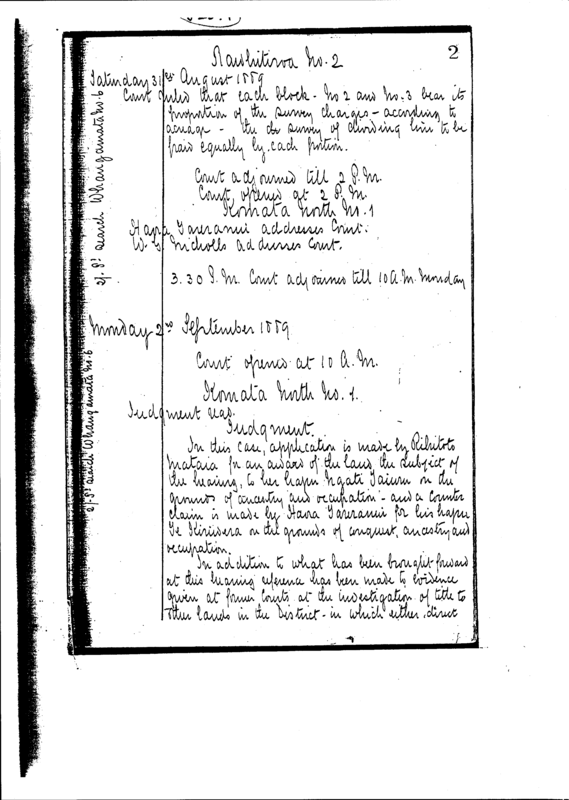 2
Rawhitiroa No. 2
Saturday 31st August 1889
Court ruled that each block - No 2 and No. 3 bear its
proportion of the survey charges - according to
acreage - the survey of dividing line to be
paid equally by each portion.
Court adjourned till 2 P.M.
Court opened at 2 P.M.
Komata North No. 1
Hara Tareranui addresses Court.
W. G. Nicholls addresses Court.
3.30 P.M. Court adjourned till 10 A.M. Monday
Monday 2nd September 1889
Court opened at 10 A.M.
Komata North No. 1.
Judgment read.
Judgment.
In this case, application is made by Rihitoto
Mataia for an award of the land, the subject of
the hearing, to her hapu Ngati Taiuru on the
grounds of ancestry and occupation - and a counter
claim is made by Hara Tareranui for his hapu
Te Kiriwera on the grounds of conquest, ancestry and
occupation.
In addition to what has been brought forward
at this hearing reference has been made to evidence
given at former Courts at the investigation of title to
other lands in the District - in which either direct
search Whangamata No. 6
search Whangamata No. 6